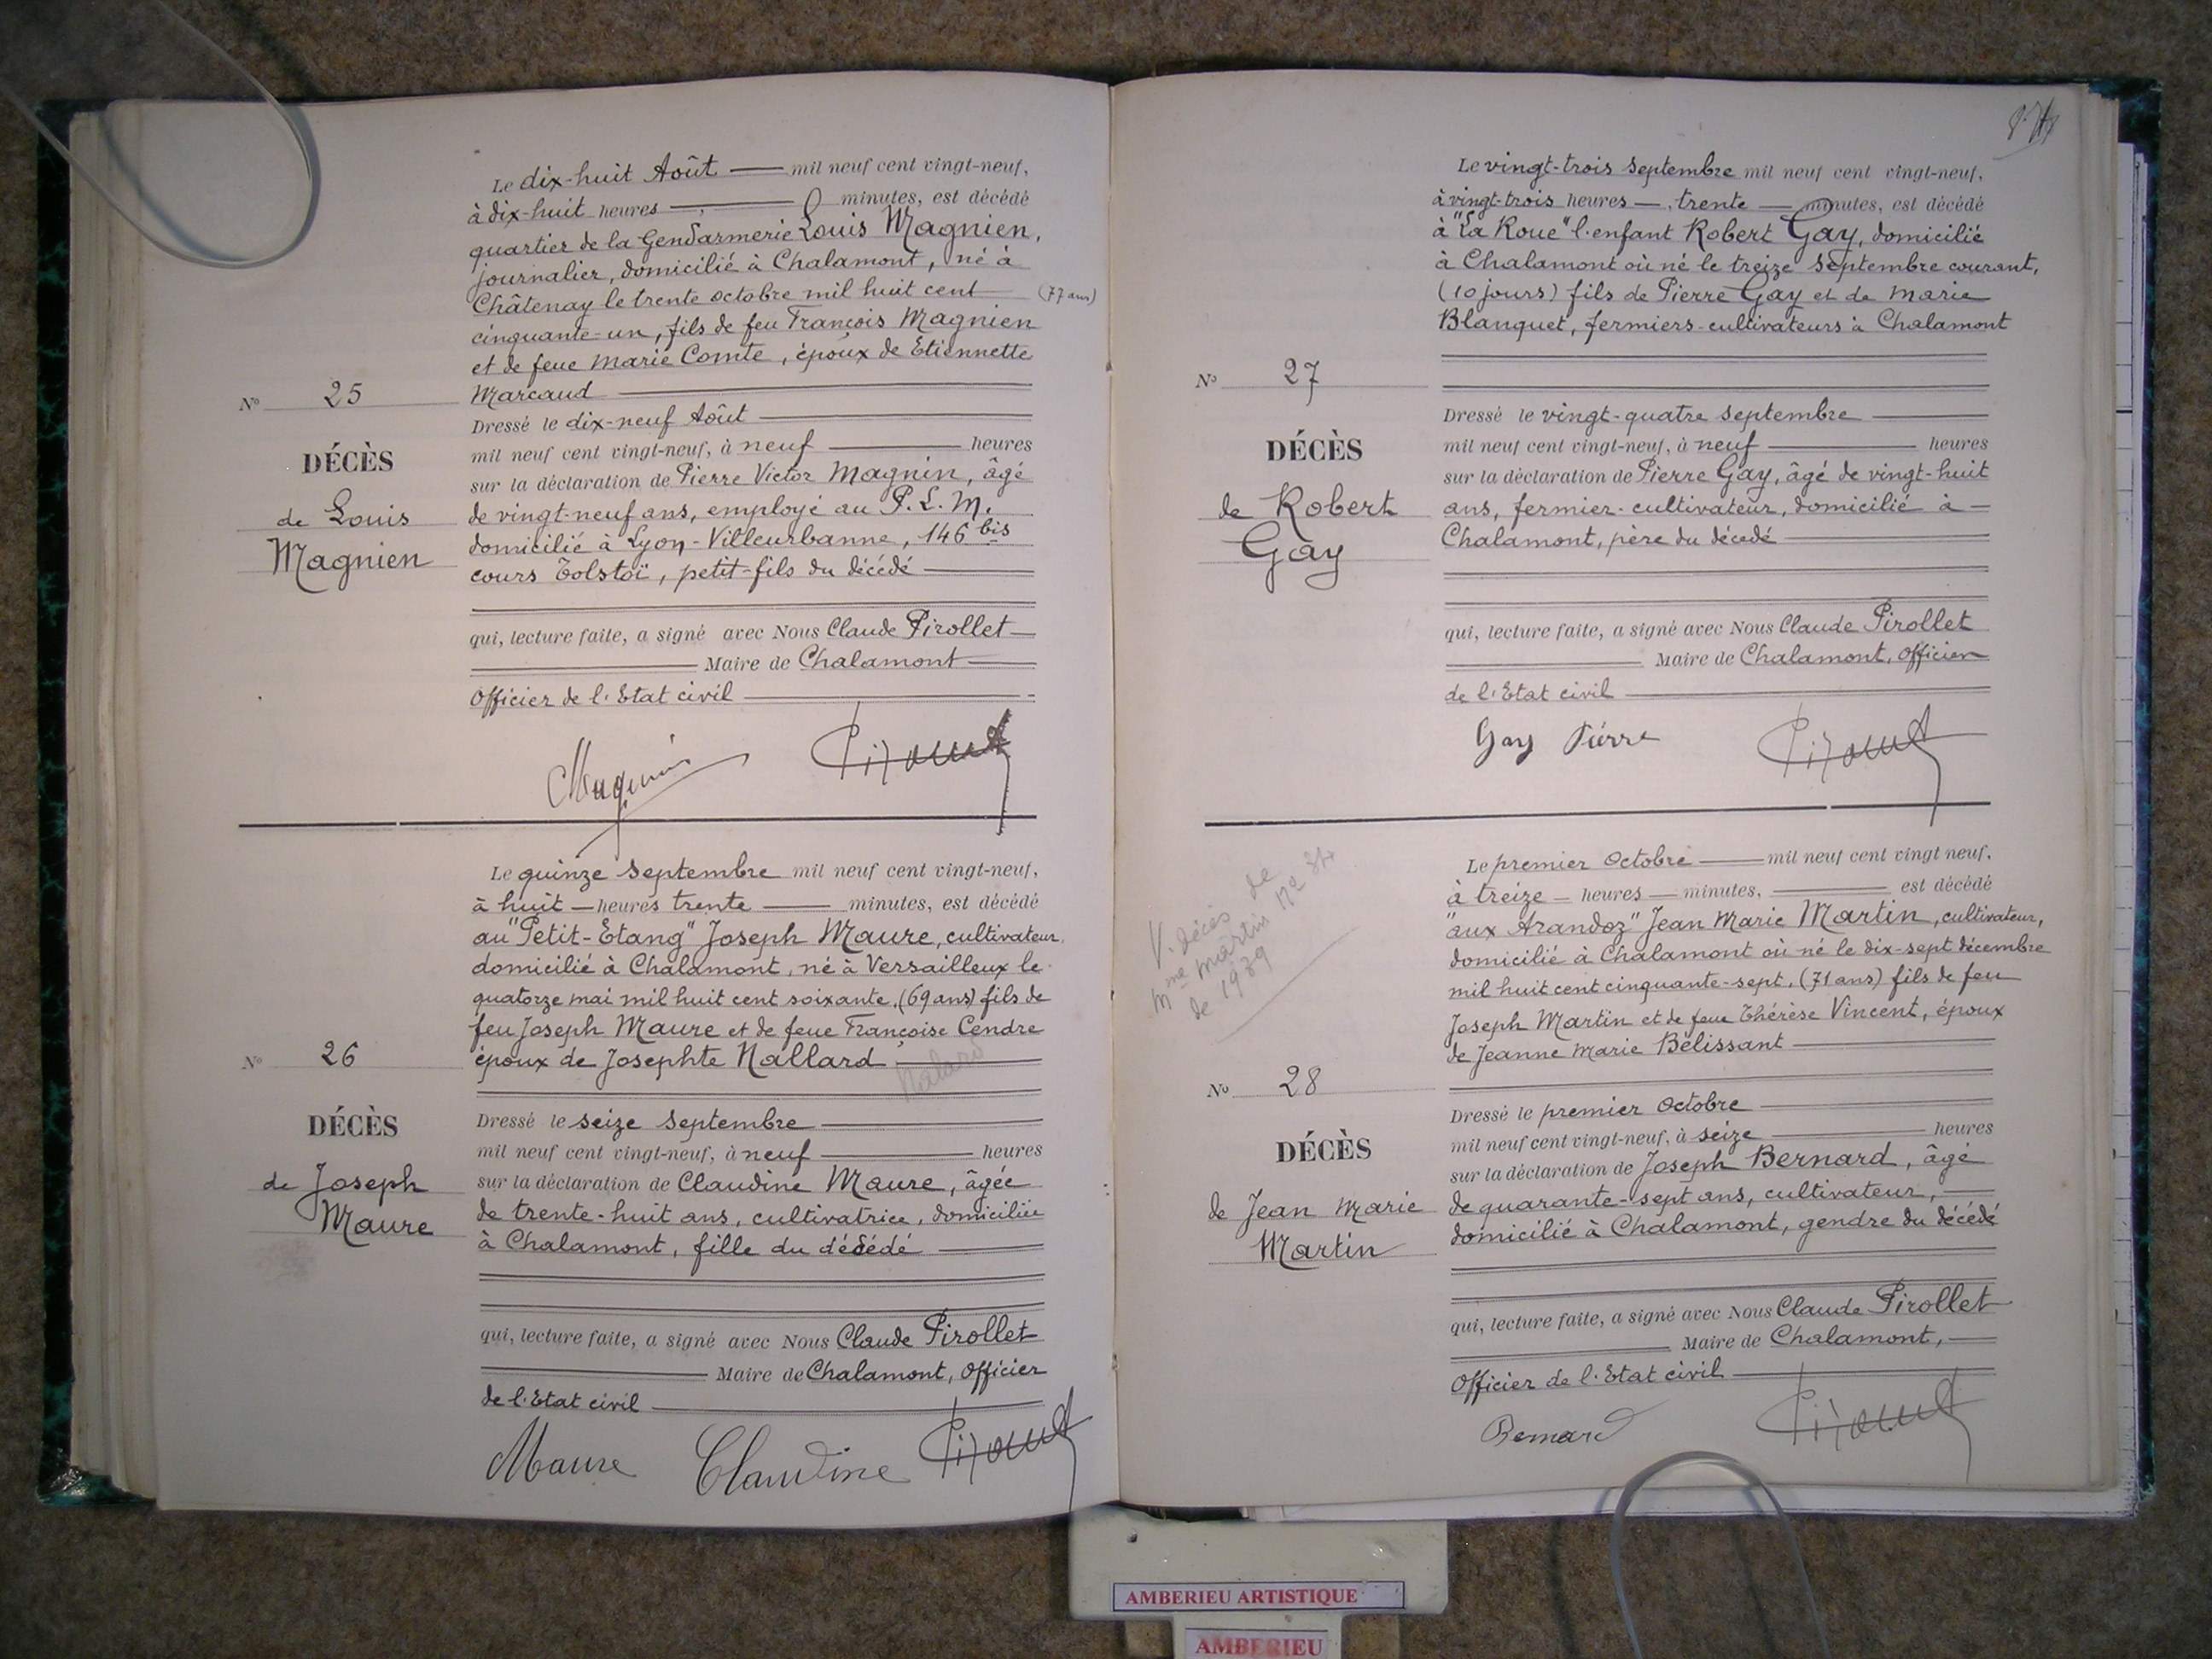 Le dix-huit Août mil neuf cent vingt-neuf,
à dix-huit heures minutes, est décédé
quartier de la Gendarmerie Louis Magnien,
journalier, domicilié à Chalamont, né à
Châtenay le trente octobre mil huit cent (77 ans)
cinquante-un, fils de feu François Magnien
et de feue Marie Comte, époux de Etiennette
Marcaud
Nº 25
DÉCÈS
de Louis
Magnien
Dressé le dix-neuf Août
mil neuf cent vingt-neuf, à neuf heures
sur la déclaration de Pierre Victor Magnin, âgé
de vingt-neuf ans, employé au P. L. M.
domicilié à Lyon-Villeurbanne, 146 bis
cours Tolstoï, petit-fils du décédé
qui, lecture faite, a signé avec Nous Claude Pirollet
Maire de Chalamont
Officier de l'Etat civil
Magnin
Le quinze Septembre mil neuf cent vingt-neuf,
à huit heures trente minutes, est décédé
au "Petit-Etang" Joseph Maure, cultivateur,
domicilié à Chalamont, né à Versailleux le
quatorze mai mil huit cent soixante, (69 ans) fils de
feu Joseph Maure et de feue Françoise Cendre
époux de Josephte Nallard
Nalard
Nº 26
DÉCÈS
de Joseph
Maure
Dressé le seize Septembre
mil neuf cent vingt-neuf, à neuf heures
sur la déclaration de Claudine Maure, âgée
de trente-huit ans, cultivatrice, domiciliée
à Chalamont, fille du décédé
qui, lecture faite, a signé avec Nous Claude Pirollet
Maire de Chalamont, Officier
de l'Etat civil
Maure Claudine
Le vingt-trois Septembre mil neuf cent vingt-neuf,
à vingt-trois heures, trente minutes, est décédé
à "La Roue" l'enfant Robert Gay, domicilié
à Chalamont où né le treize Septembre courant,
(10 jours) fils de Pierre Gay et de Marie
Blanquet, fermiers-cultivateurs à Chalamont
Nº 27
DÉCÈS
de Robert
Gay
Dressé le vingt-quatre Septembre
mil neuf cent vingt-neuf, à neuf heures
sur la déclaration de Pierre Gay, âgé de vingt-huit
ans, fermier-cultivateur, domicilié à
Chalamont, père du décédé
qui, lecture faite, a signé avec Nous Claude Pirollet
Maire de Chalamont, Officier
de l'Etat civil
Gay Pierre
Le premier Octobre mil neuf cent vingt neuf,
à treize heures minutes, est décédé
"aux Arandoz" Jean Marie Martin, cultivateur,
domicilié à Chalamont où né le dix-sept décembre
mil huit cent cinquante-sept, (71 ans) fils de feu
Joseph Martin et de feue Thérèse Vincent, époux
de Jeanne Marie Bélissant
V. décès de
Mme Martin Nº
de 1939
Nº 28
DÉCÈS
de Jean Marie
Martin
Dressé le premier Octobre
mil neuf cent vingt-neuf, à seize heures
sur la déclaration de Joseph Bernard, âgé
de quarante-sept ans, cultivateur,
domicilié à Chalamont, gendre du décédé
qui, lecture faite, a signé avec Nous Claude Pirollet
Maire de Chalamont,
Officier de l'Etat civil
Bernard
AMBERIEU ARTISTIQUE
AMBERIEU